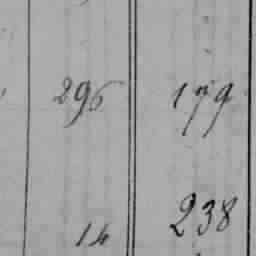 296 179
14 238